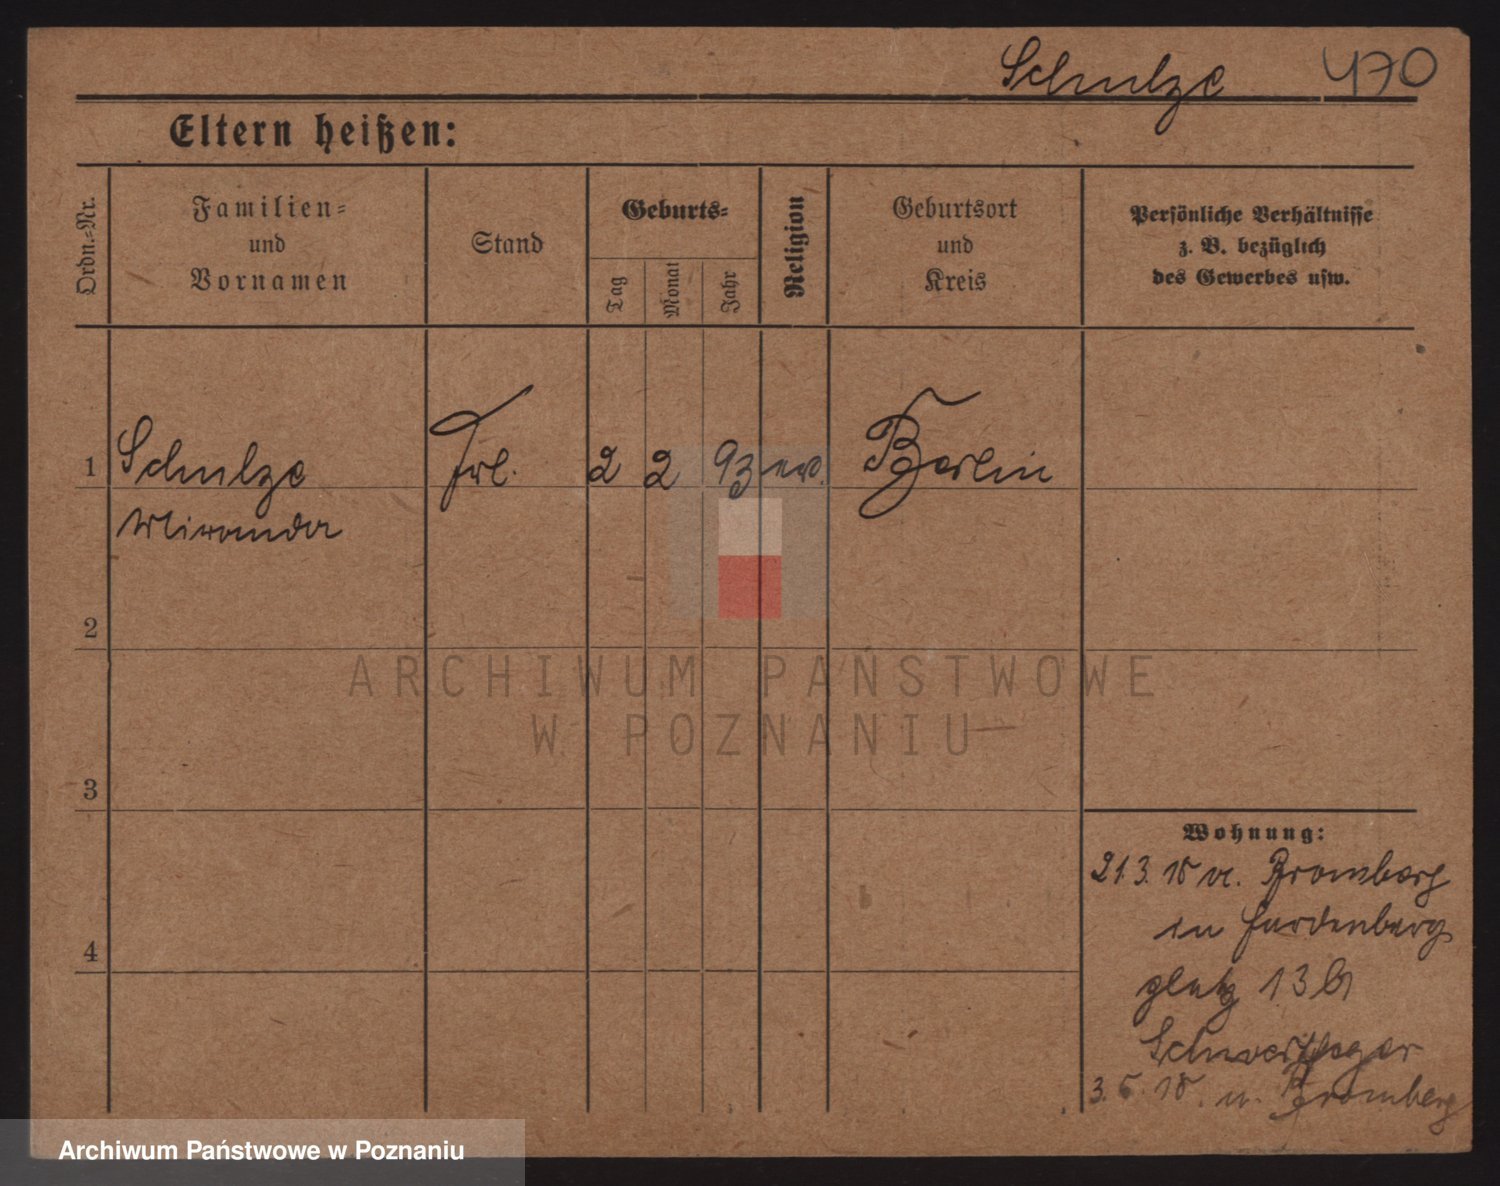 Schulze 470
Eltern heißen:
Ordn.-Nr.
Familien-
und
Vornamen
Stand
Geburts-
Tag
Monat
Jahr
Religion
Geburtsort
und
Kreis
Persönliche Verhältnisse
z. B. bezüglich
des Gewerbes usw.
1 Schulze Frl. 2 2 93 Berlin
2
3
4
Wohnung:
21.3. 18 v. Bromberg
in
platz 13
3. 5. 18. n. Bromberg
ARCHIWUM PAŃSTWOWE
W POZNANIU
Archiwum Państwowe w Poznaniu